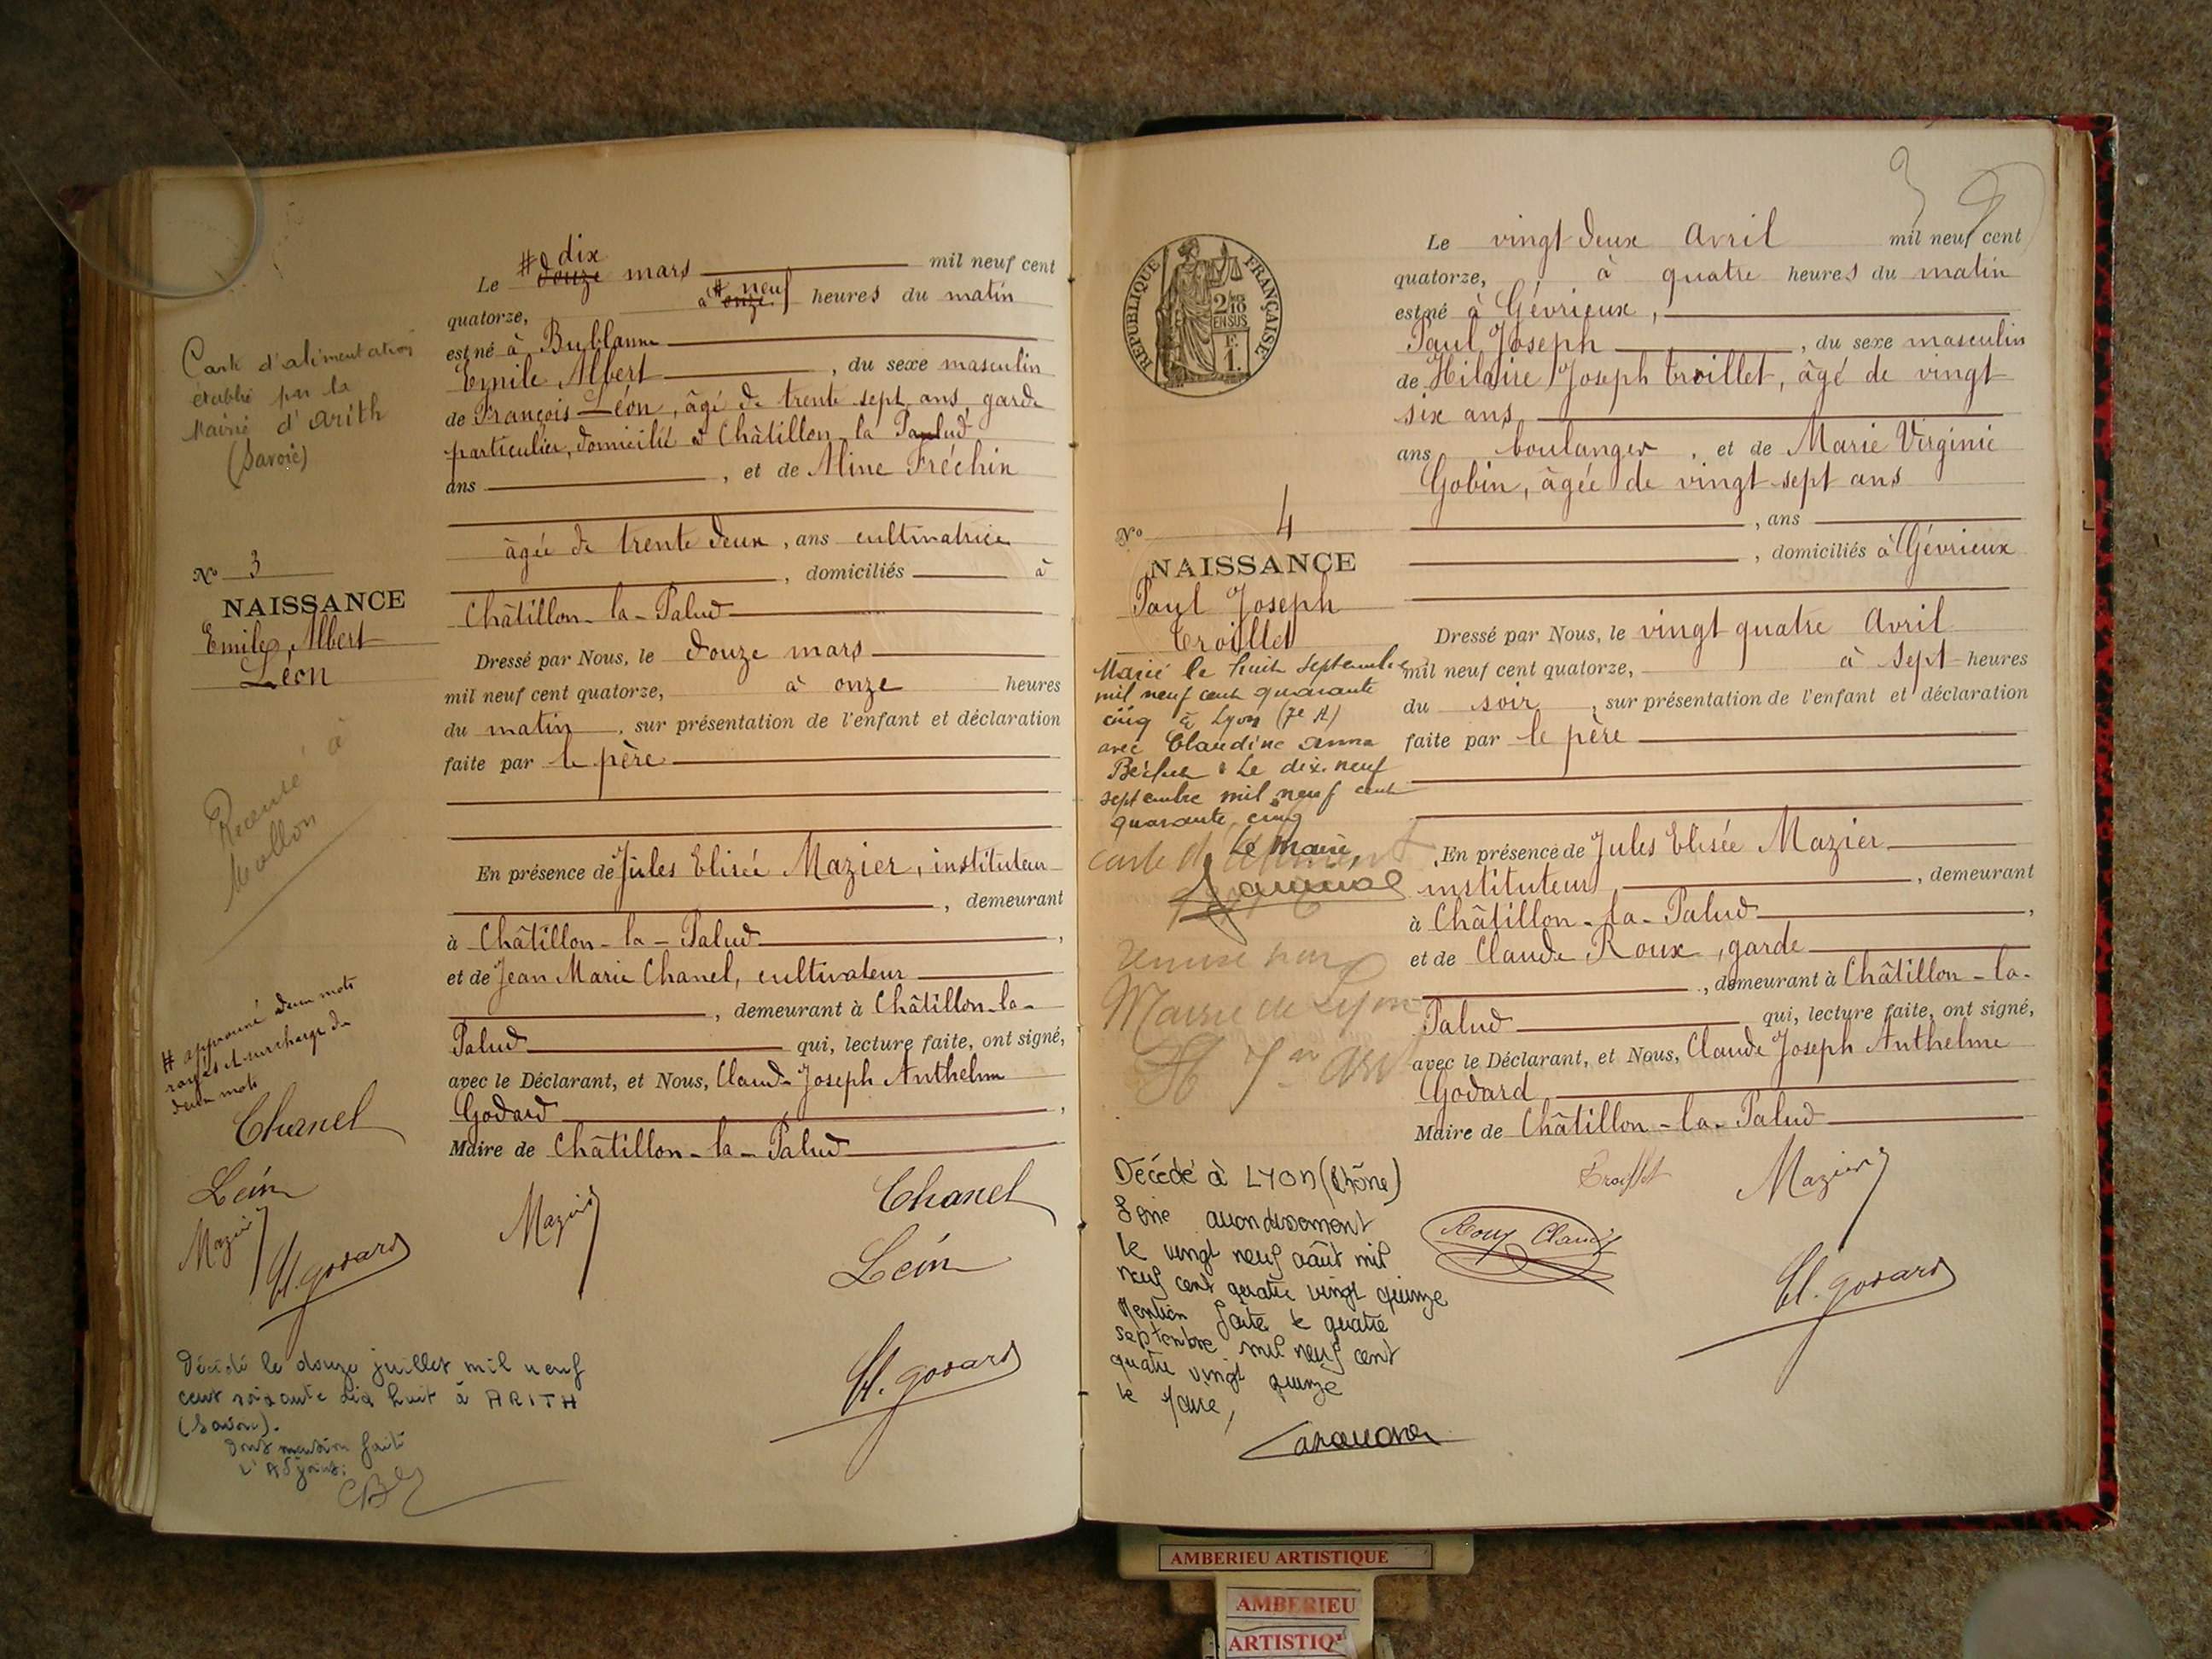 Carte d'alimentation
établie par la
Mairie d'Arith
(Savoie)
N° 3
NAISSANCE
Emile Albert
Léon
Recensé à
Mollon
# approuvé deux mots
rayés et surcharge de
deux mots
Chanel
Léon
Mazier
Cl. Godard
Décédé le douze juillet mil neuf
cent soixante dix huit à ARITH
(Savoie).
Dont mention faite
L'Adjoint:
# dix
Le douze mars mil neuf cent
# neuf
quatorze, à onze heures du matin
est né à Bublanne
Emile Albert, du sexe masculin
de François Léon, âgé de trente sept ans, garde
particulier, domicilié à Châtillon la Palud
ans, et de Aline Fréchin
âgée de trente deux, ans cultivatrice
, domiciliés à
Châtillon-la-Palud
Dressé par Nous, le douze mars
mil neuf cent quatorze, à onze heures
du matin, sur présentation de l'enfant et déclaration
faite par le père
En présence de Jules Elisée Mazier, instituteur
, demeurant
à Châtillon-la-Palud,
et de Jean Marie Chanel, cultivateur
, demeurant à Châtillon-la-
Palud qui, lecture faite, ont signé,
avec le Déclarant, et Nous, Claude Joseph Anthelme
Godard,
Maire de Châtillon-la-Palud
Mazier
Chanel
Léon
Cl. Godard
3
RÉPUBLIQUE FRANÇAISE
2/10
EN SUS
F.
1.
N° 4
NAISSANCE
Paul Joseph
Troillet
Marié le huit septembre
mil neuf cent quarante
cinq à Lyon (7e A)
avec Claudine Anna
Le dix-neuf
septembre mil neuf cent
quarante cinq
Le Maire,
Carte d'
remise par
Mairie de Lyon
Décédé à LYON (Rhône)
8ème arrondissement
le vingt neuf août mil
neuf cent quatre vingt quinze
Mention faite le quatre
septembre mil neuf cent
quatre vingt quinze
le Maire,
Le vingt deux Avril mil neuf cent
quatorze, à quatre heures du matin
est né à Gévrieux,
Paul Joseph, du sexe masculin
de Hilaire Joseph Troillet, âgé de vingt
six ans,
ans boulanger, et de Marie Virginie
Gobin, âgée de vingt-sept ans
, ans
, domiciliés à Gévrieux
Dressé par Nous, le vingt quatre Avril
mil neuf cent quatorze, à sept heures
du soir, sur présentation de l'enfant et déclaration
faite par le père
En présence de Jules Elisée Mazier
instituteur, demeurant
à Châtillon-la-Palud,
et de Claude Roux, garde
, demeurant à Châtillon-la-
Palud qui, lecture faite, ont signé,
avec le Déclarant, et Nous, Claude Joseph Anthelme
Godard
Maire de Châtillon-la-Palud
Troillet
Mazier
Roux Claude
Cl. Godard
AMBERIEU ARTISTIQUE
AMBERIEU
ARTISTIQ